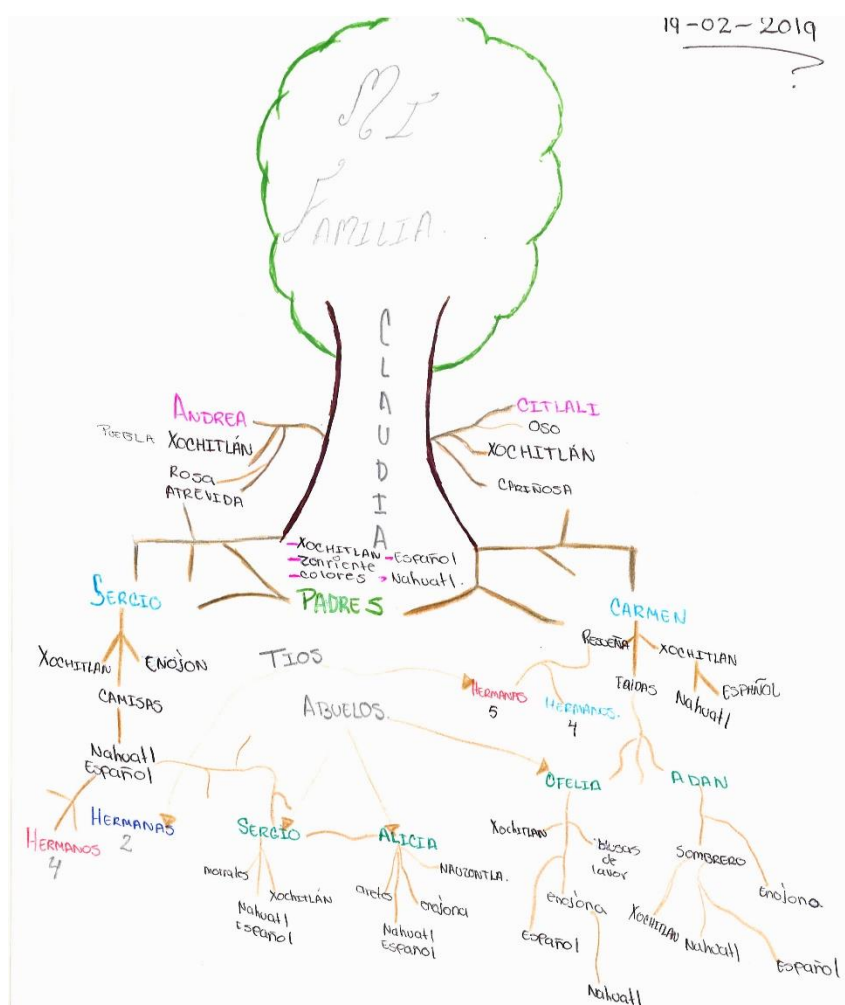 19-02-2019
?
MI
FAMILIA.
CLAUDIA
ANDREA
PUEBLA XOCHITLÁN
ROSA
ATREVIDA
CITLALI
OSO
XOCHITLÁN
CARIÑOSA
XOCHITLAN Español
Zonriente
colores Nahuatl.
PADRES
SERGIO
XOCHITLAN ENOJON
CAMISAS
Nahuatl
Español
HERMANOS
4
HERMANAS
2
CARMEN
XOCHITLAN
ESPAÑOL
Nahuatl
TIOS
HERMANAS
5
HERMANOS.
4
ABUELOS.
SERGIO
morrales
XOCHITLÁN
Nahuatl
Español
ALICIA
NAUZONTLA.
aretes
enojona
Nahuatl
Español
OFELIA
Xochitlan
blusas
de
labor
enojona
Español
Nahuatl
ADAN
SOMBRERO
Enojono.
Xochitlan
Nahuatl
Español